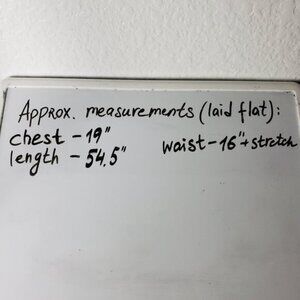 Approx. measurements (laid flat):
chest - 19" waist - 16" + stretch
length - 54.5"